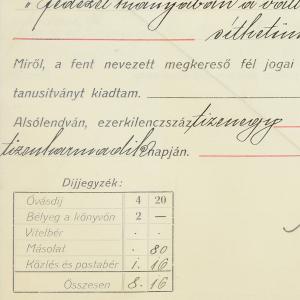 "fedezet hiányában a vál
síthetün
Miről, a fent nevezett megkereső fél jogai
tanusítványt kiadtam.
Alsólendván, ezerkilenczszáz tizenegy
tizenharmadik napján.
Díjjegyzék:
Óvásdíj 4 20
Bélyeg a könyvön 2 —
Vitelbér . .
Másolat . 80
Közlés és postabér 1. 16
Összesen 8. 16